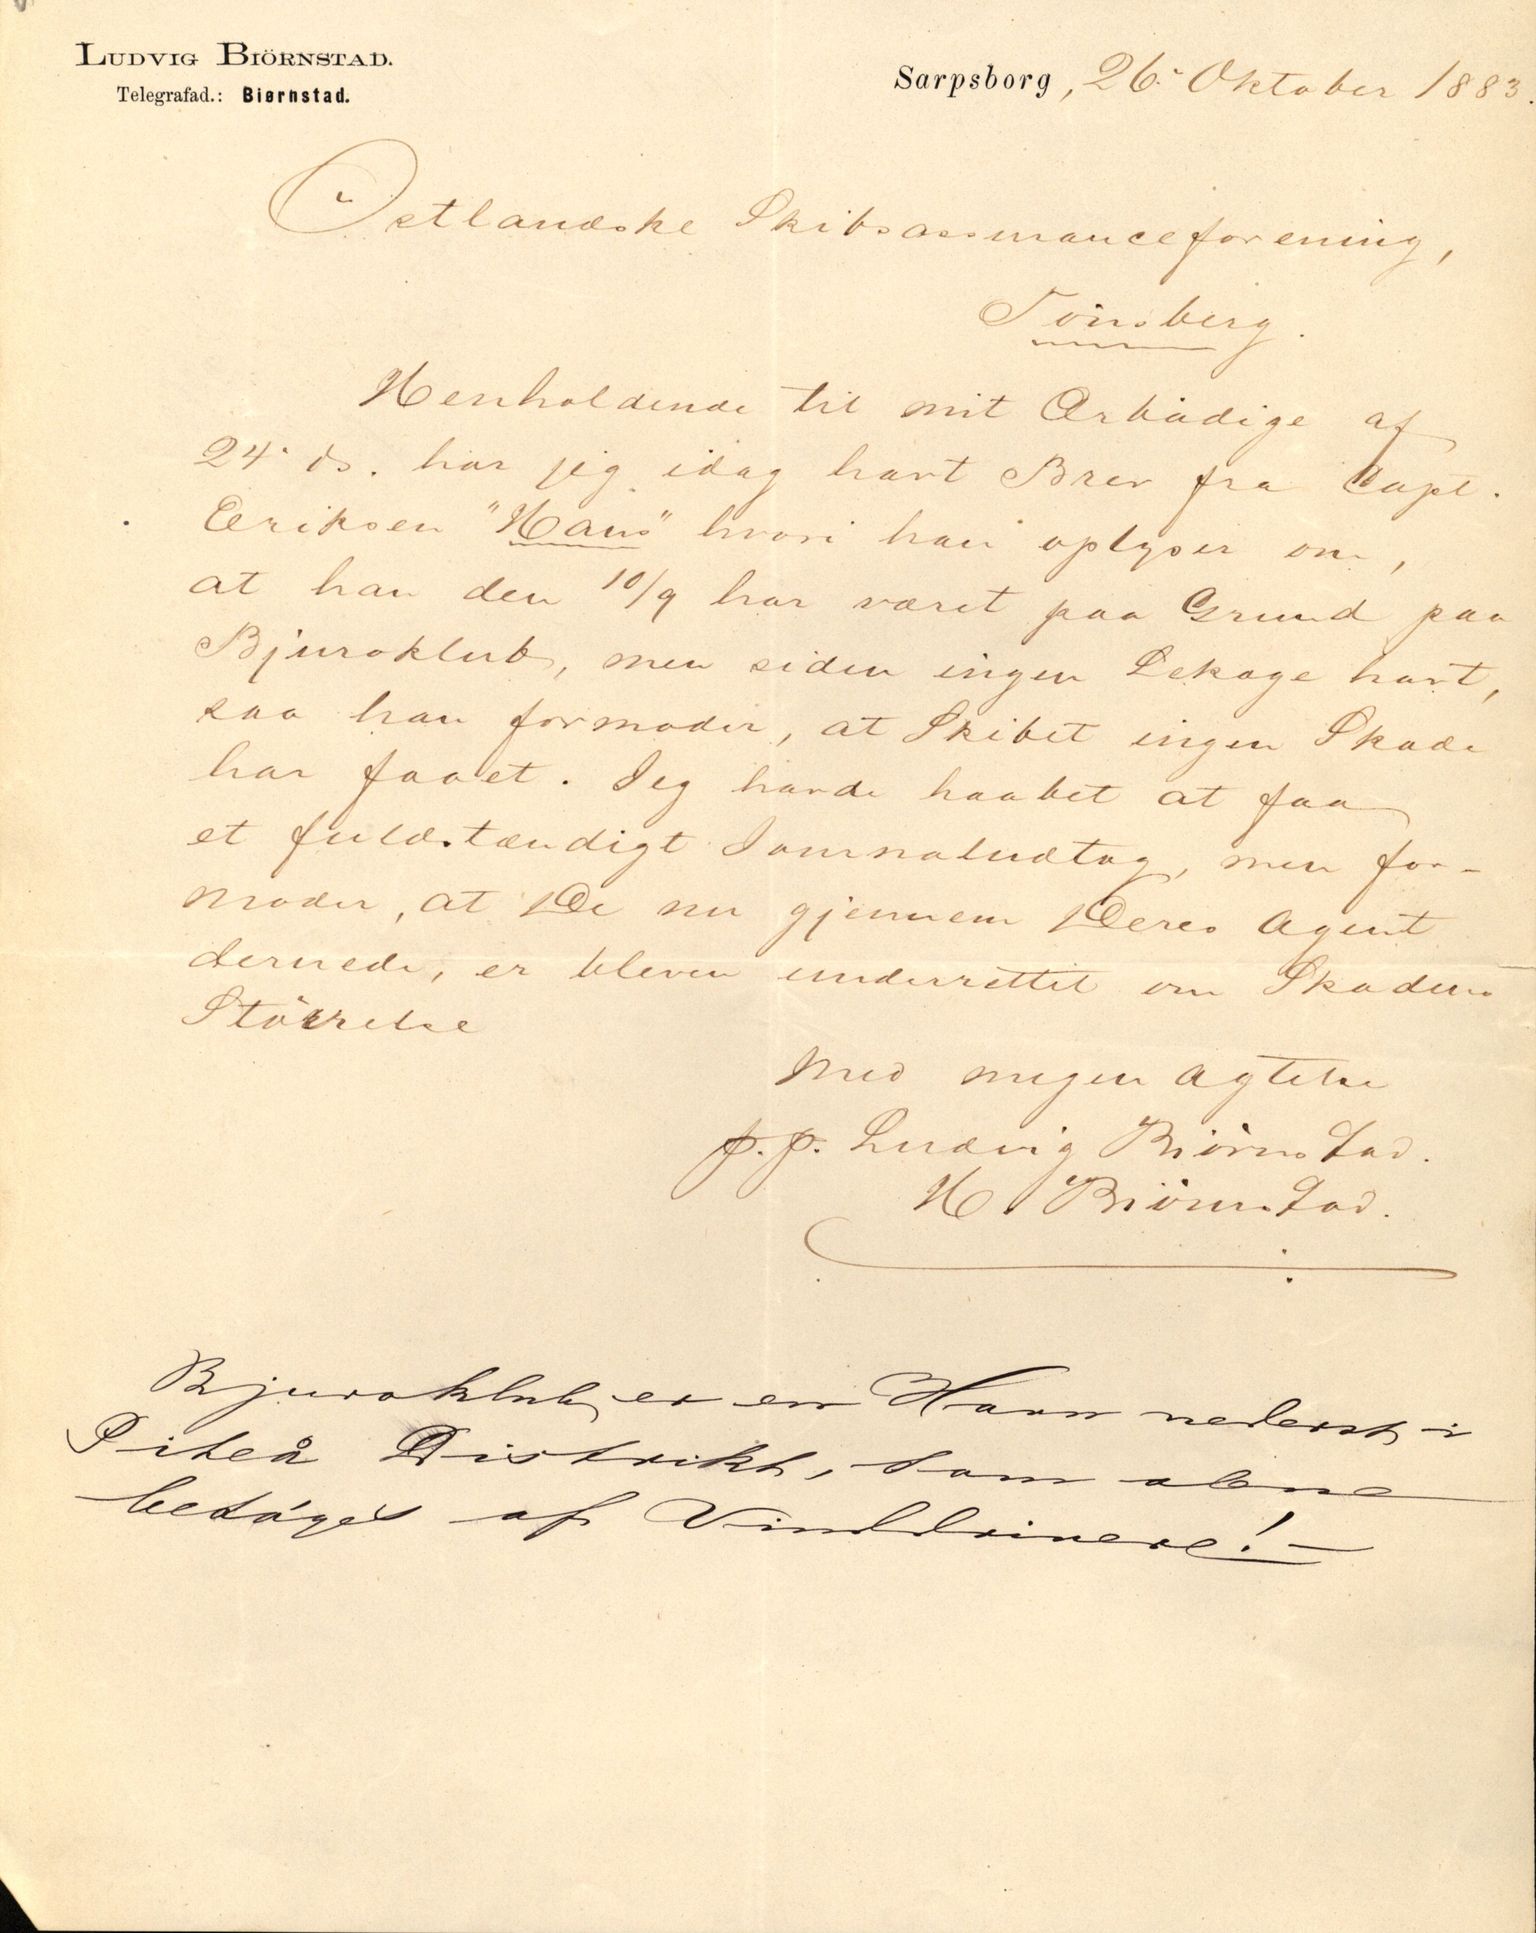 LUDVIG BIÖRNSTAD.
Telegrafad.: Biørnstad.
Sarpsborg, 26 Oktober 1883.
Östlandske Skibsassuranceforening,
Tönsberg.
Henholdende til mit Ærbödige af
24 ds. har jeg idag havt Brev fra Capt.
Eriksen "Hans" hvori han oplyser om,
at han den 10/9 har været paa Grund paa
Bjuroklub, men siden ingen Lekage havt,
saa han formoder, at Skibet ingen Skade
har faaet. Jeg havde haabet at faa
et fuldstændigt Journaludtog, men for-
moder, at De nu gjennem Deres Agent
dernede, er bleven underrettet om Skadens
Störrelse
Med megen Agtelse
p.p. Ludvig Biörnstad.
H. Biörnstad.
Bjuroklub er en Havn nederst i
Piteå Distrikt, som alene
besöges af Vinddrivere! -